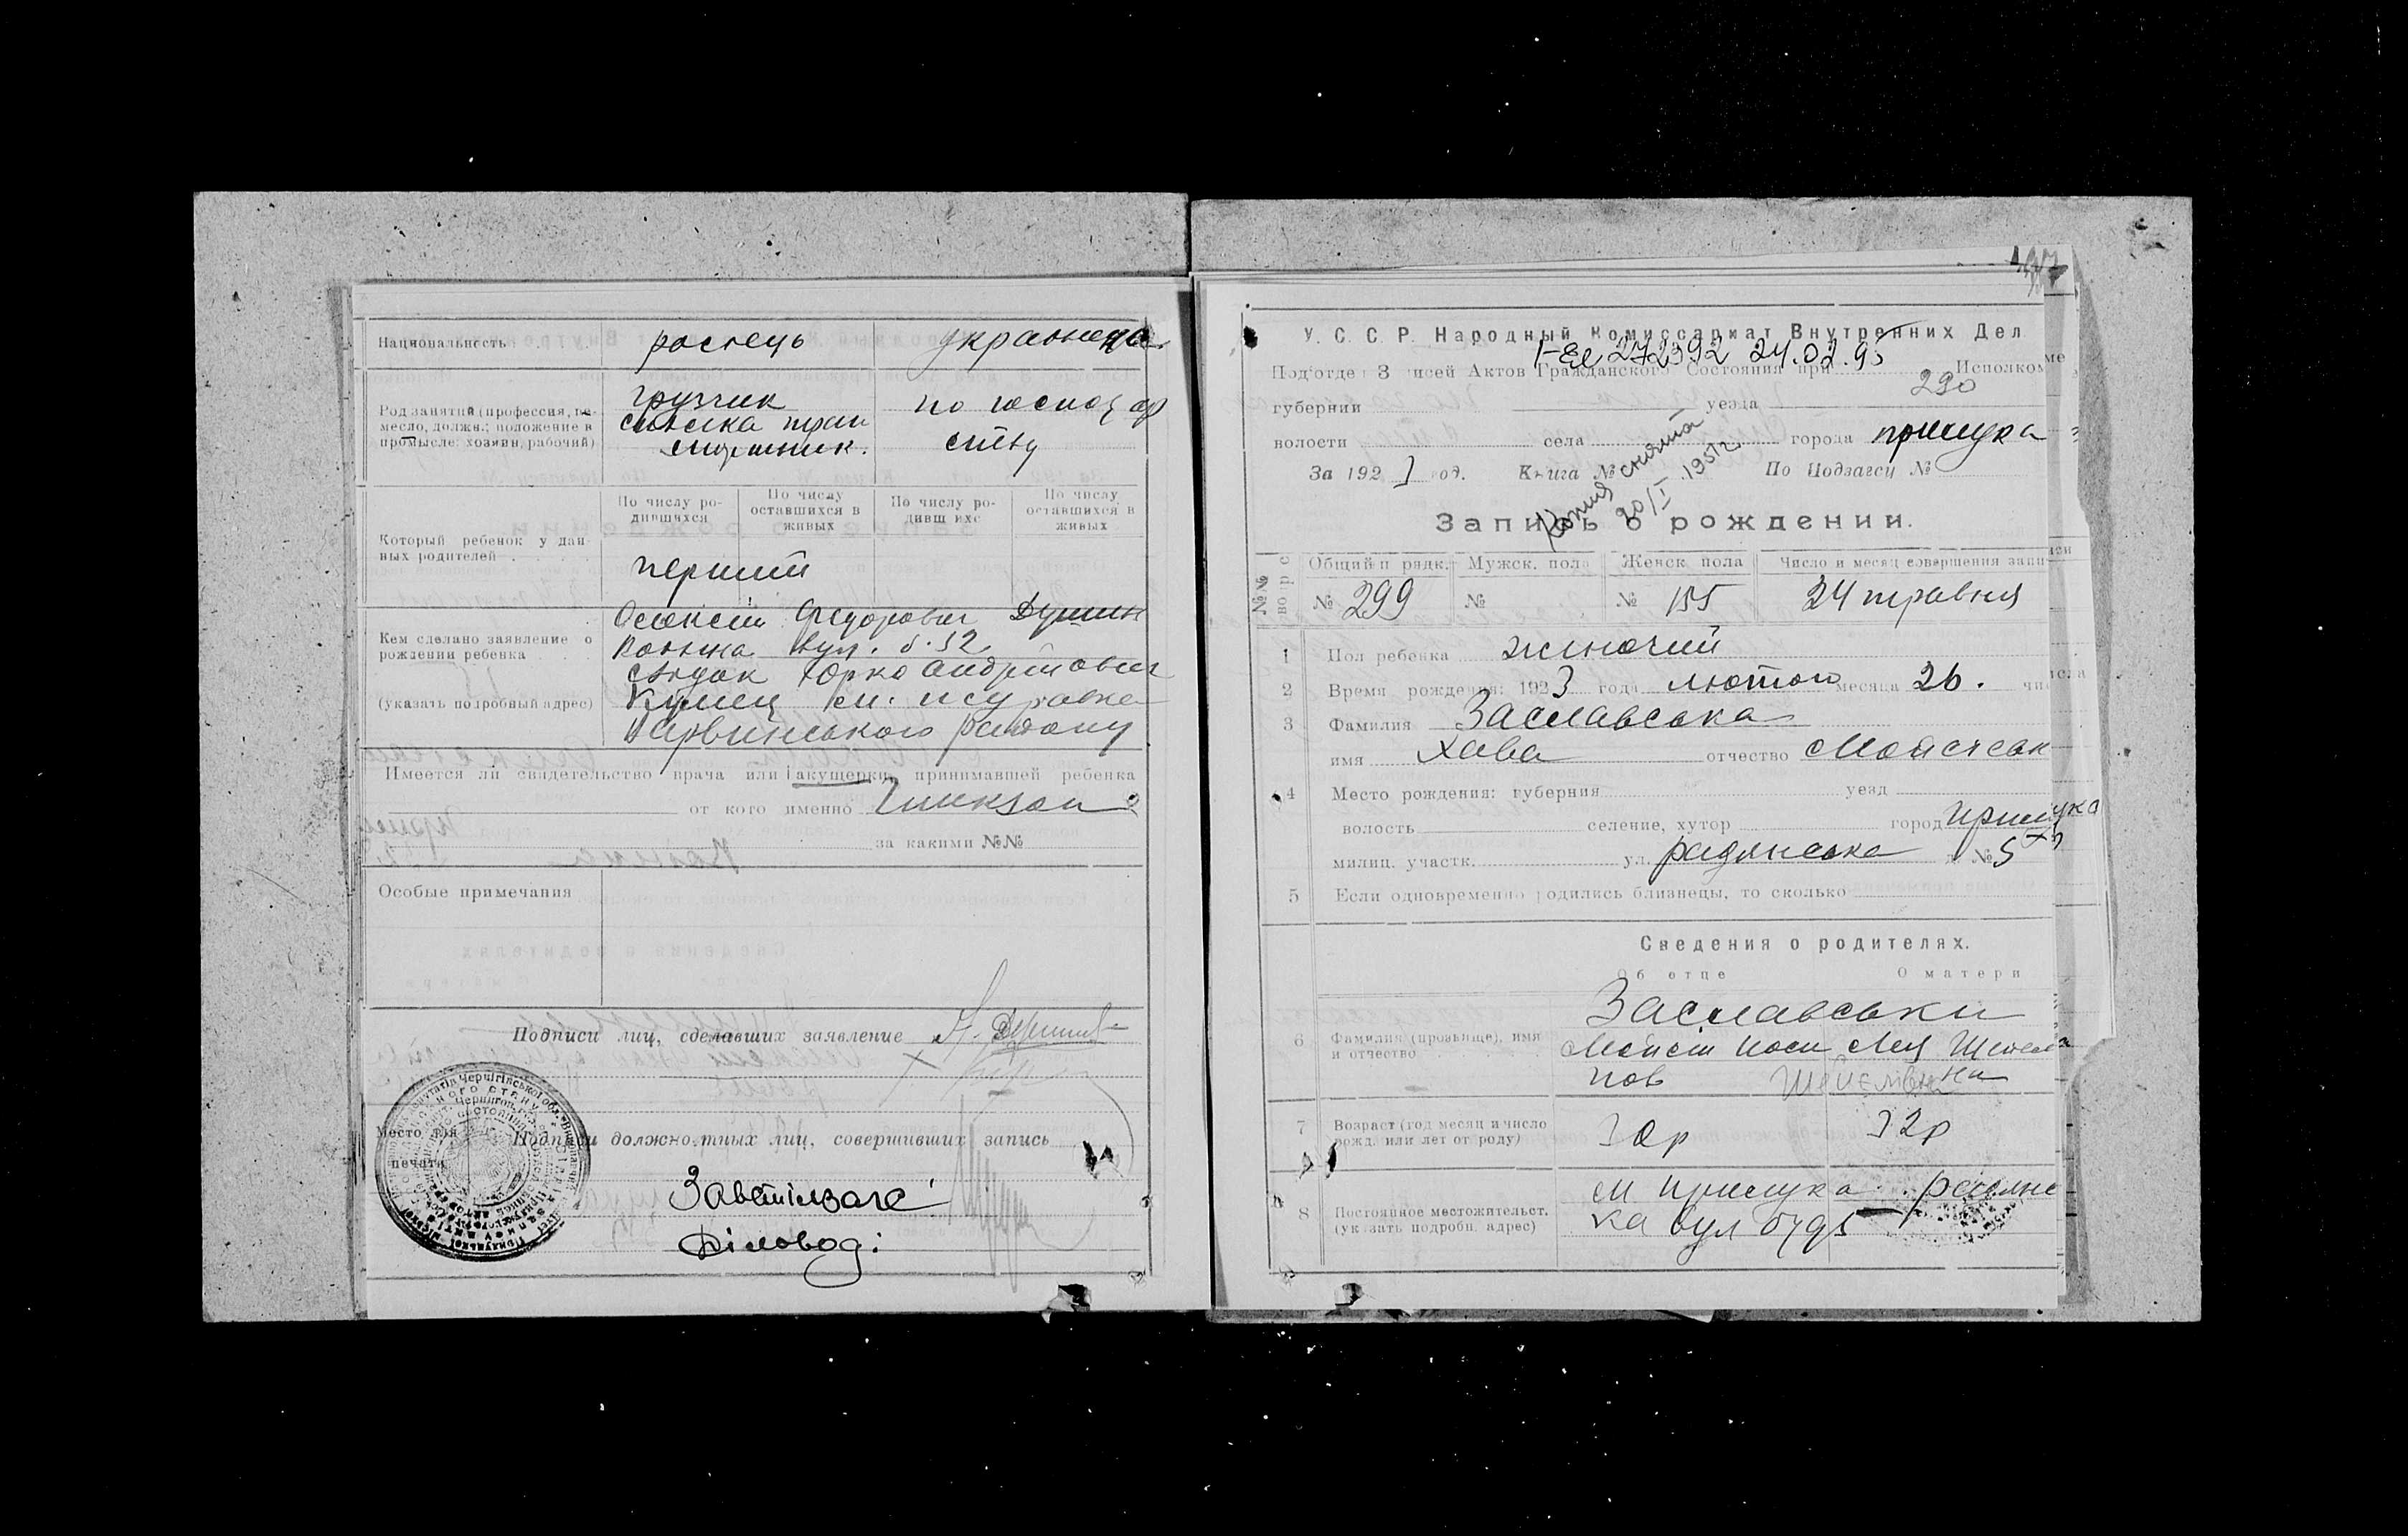 Национальность росіець українка
Род занятий (профессия, ре-
месло, должн.; положение в
промысле: хозяин, рабочий)
грузчик по господар
ству
Который ребенок у дан-
ных родителей
По числу ро-
дившихся
По числу
оставшихся в
живых
По числу ро-
дивш ихс
По числу
оставшихся в
живых
перший
Кем сделано заявление о
рождении ребенка
(указать подробный адрес)
Олексій Федорович Душин
вул. б. 52
свідок Юрко Андрійович
Варвинського району
Имеется ли свидетельство врача или акушерки, принимавшей ребенка
от кого именно
за какими №№
Особые примечания
Подписи лиц, сделавших заявление
Место для
печати
Подписи должностных лиц, совершивших запись
Завстілзагс
Діловод:
У. С. С. Р. Народный Комиссариат Внутренних Дел
І-ЕЛ 272392 24.02.95
Подотдел Записей Актов Гражданского Состояния при Исполкоме
290
губернии уезда
волости села города прилука
За 192 3 год. Книга № По Подзагсу №
Копия снята
20/I 1951г.
Запись о рождении.
№№
вопрос
Общий п рядк. Мужск. пола Женск пола Число и месяц совершения записи
№ 299 № № 155 24 травня
1 Пол ребенка жіночий
2 Время рождения: 192 3 года лютого месяца 26. числа
3 Фамилия Заславська
имя Хава отчество Мойсеевн
4 Место рождения: губерния уезд
волость селение, хутор город Прилука
милиц. участк. ул. радянська д. № 5
5 Если одновременно родились близнецы, то сколько
Сведения о родителях.
Об отце О матери
6 Фамилия (прозвище), имя
и отчество
Заславськи
Мойсій Йоси
пов
7 Возраст (год месяц и число
рожд. или лет от роду)
30р 32р
8 Постоянное местожительст.
(указать подробн. адрес)
м Прилука радянс
ка вул буд 5